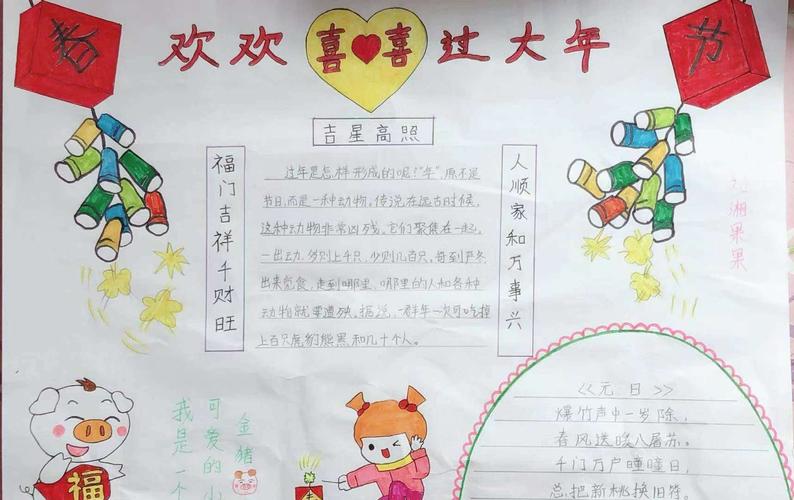 春 欢欢喜喜过大年 节
吉星高照
福门吉祥千财旺
过年是怎样形成的呢!"年"原不是
节日,而是一种动物,传说在远古时候,
这种动物非常凶残,它们聚集在一起,
一出动,多则上千只,少则几百只,每到严冬
出来觅食,走到哪里,哪里的人和各种
动物就要遭殃,据说,一群年一次可吃掉
上百只虎豹熊黑和几十个人。
人顺家和万事兴
湘果果
福
我是一个
可爱的小
金猪
《元日》
爆竹声中一岁除,
春风送暖入屠苏。
千门万户曈曈日,
总把新桃换旧符。